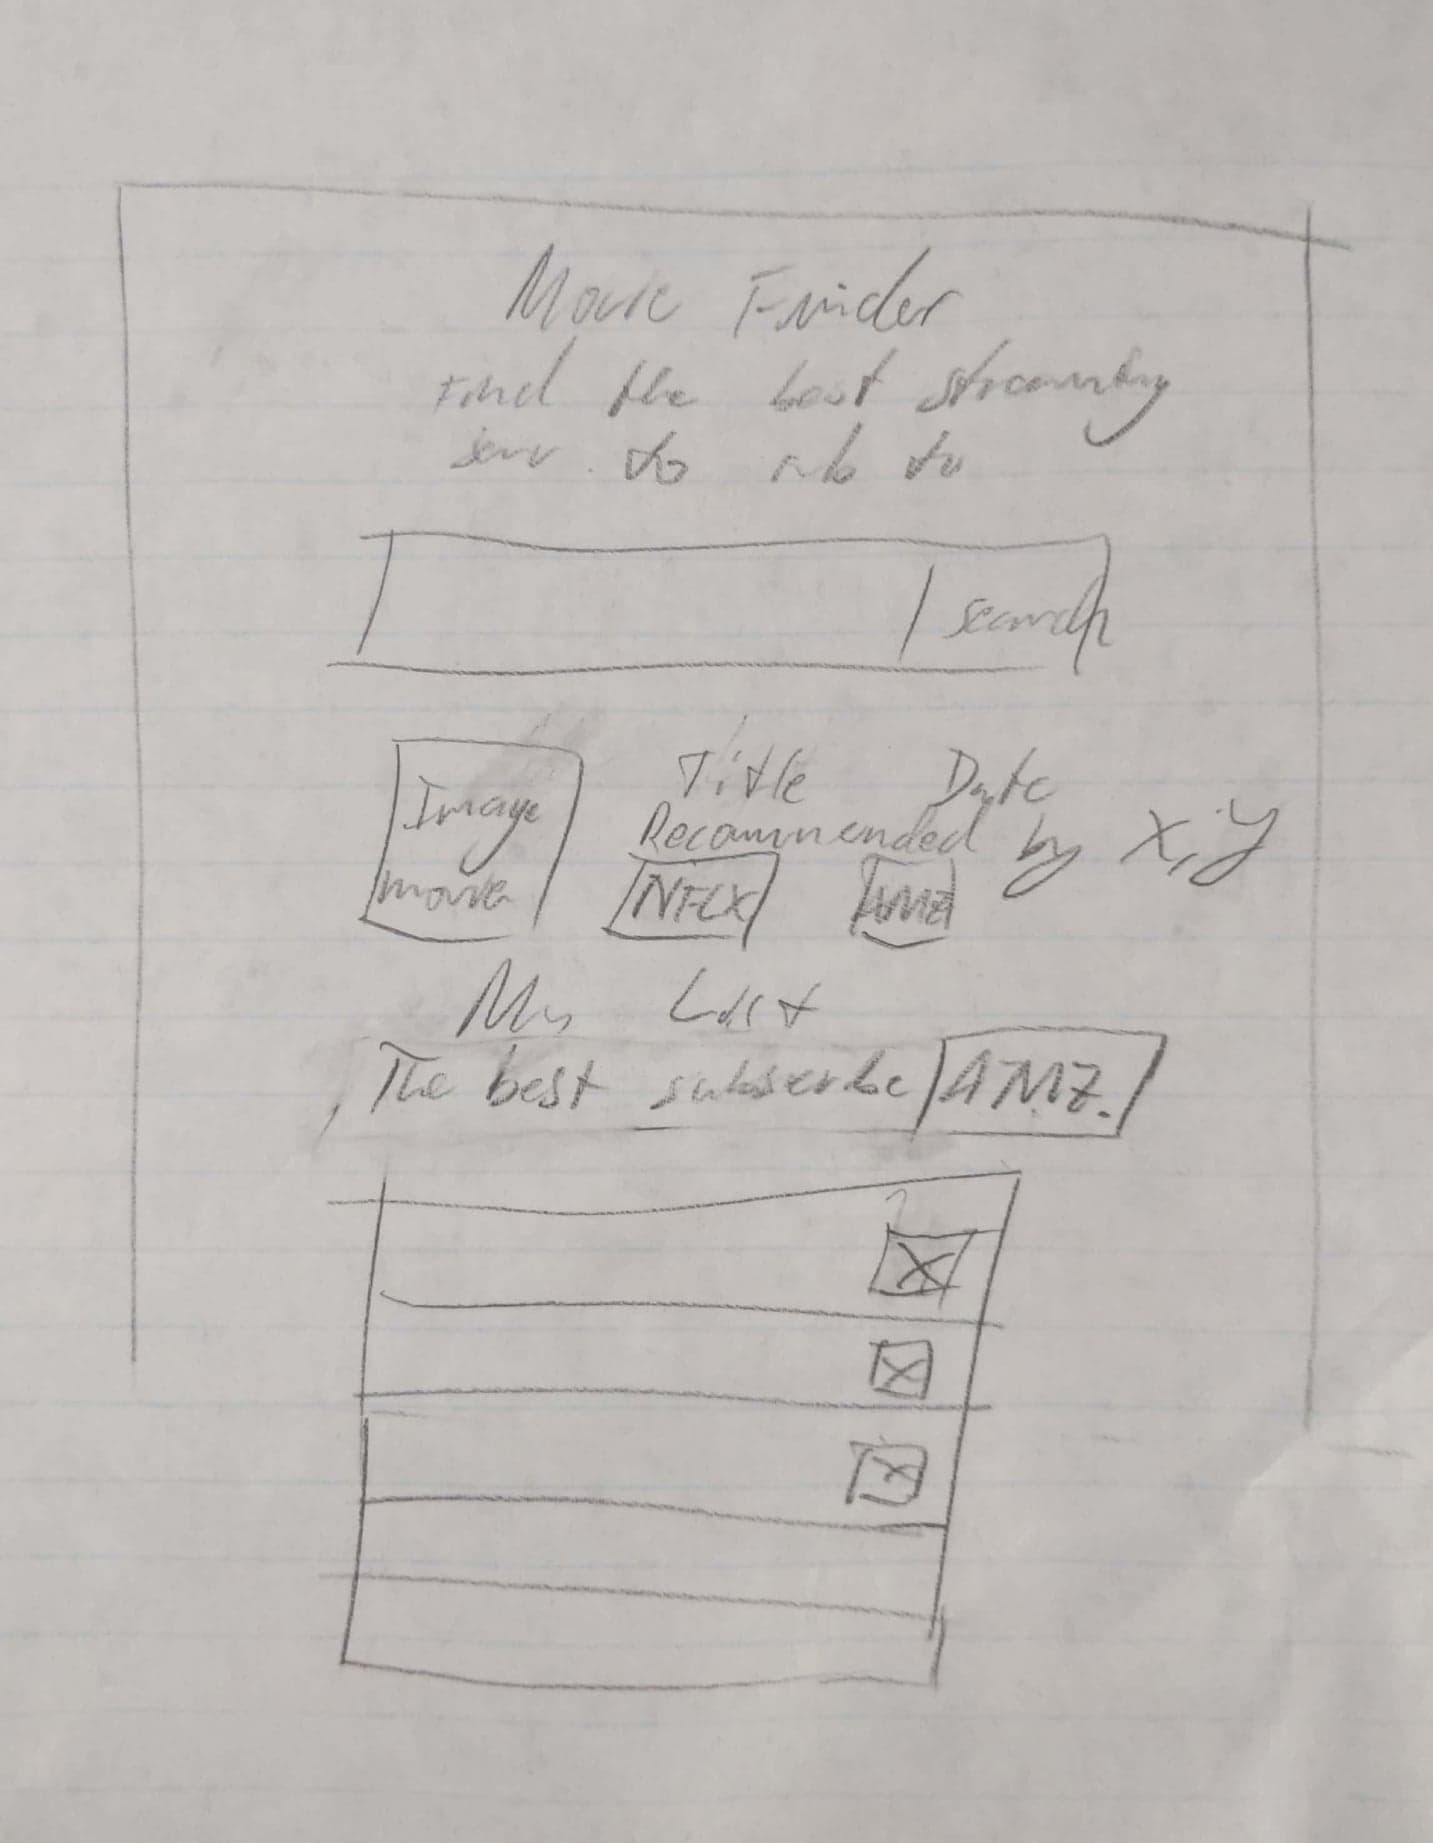 Movie Finder
Find the best streaming
serv. to sub to
search
Image
movie
Title Date
Recommended by X, Y
NFLX AMZ
My List
The best subscribe AMZ.
X
X
X